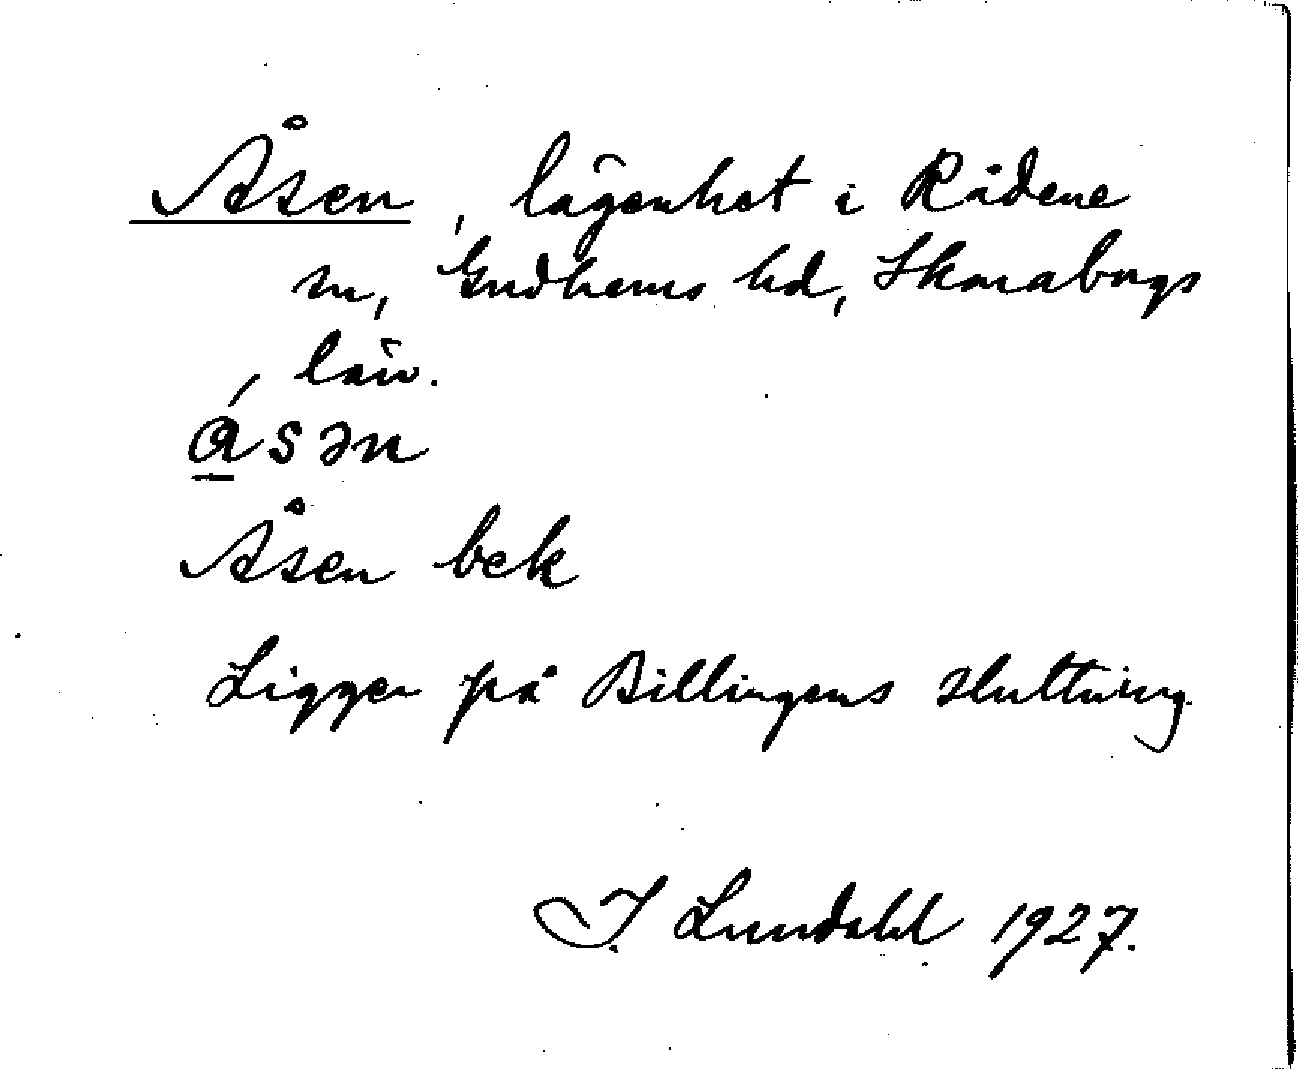 Åsen, lägenhet i Rådene
sn, Gudhems hd, Skaraborgs
län.
ásən
Åsen bek
Ligger på Billingens sluttning.
I. Lundahl 1927.